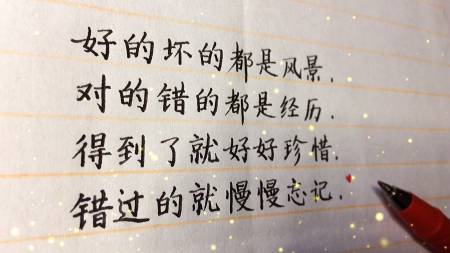 好的坏的都是风景.
对的错的都是经历.
得到了就好好珍惜.
错过的就慢慢忘记.